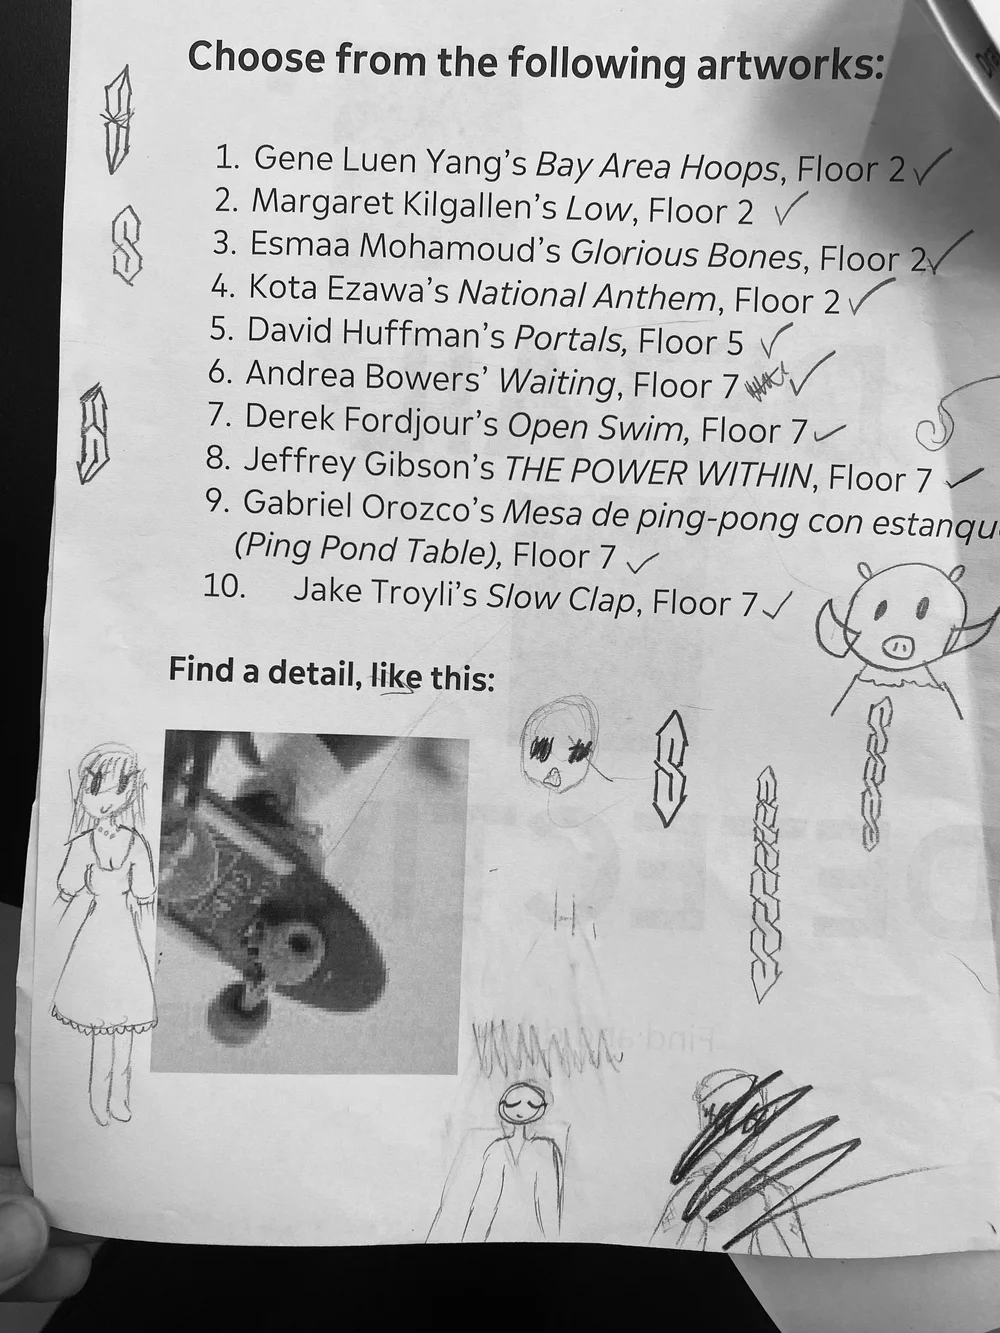 Choose from the following artworks:
1. Gene Luen Yang's Bay Area Hoops, Floor 2
2. Margaret Kilgallen's Low, Floor 2
3. Esmaa Mohamoud's Glorious Bones, Floor 2
4. Kota Ezawa's National Anthem, Floor 2
5. David Huffman's Portals, Floor 5
6. Andrea Bowers' Waiting, Floor 7
7. Derek Fordjour's Open Swim, Floor 7
8. Jeffrey Gibson's THE POWER WITHIN, Floor 7
9. Gabriel Orozco's Mesa de ping-pong con
(Ping Pond Table), Floor 7
10. Jake Troyli's Slow Clap, Floor 7
Find a detail, like this: